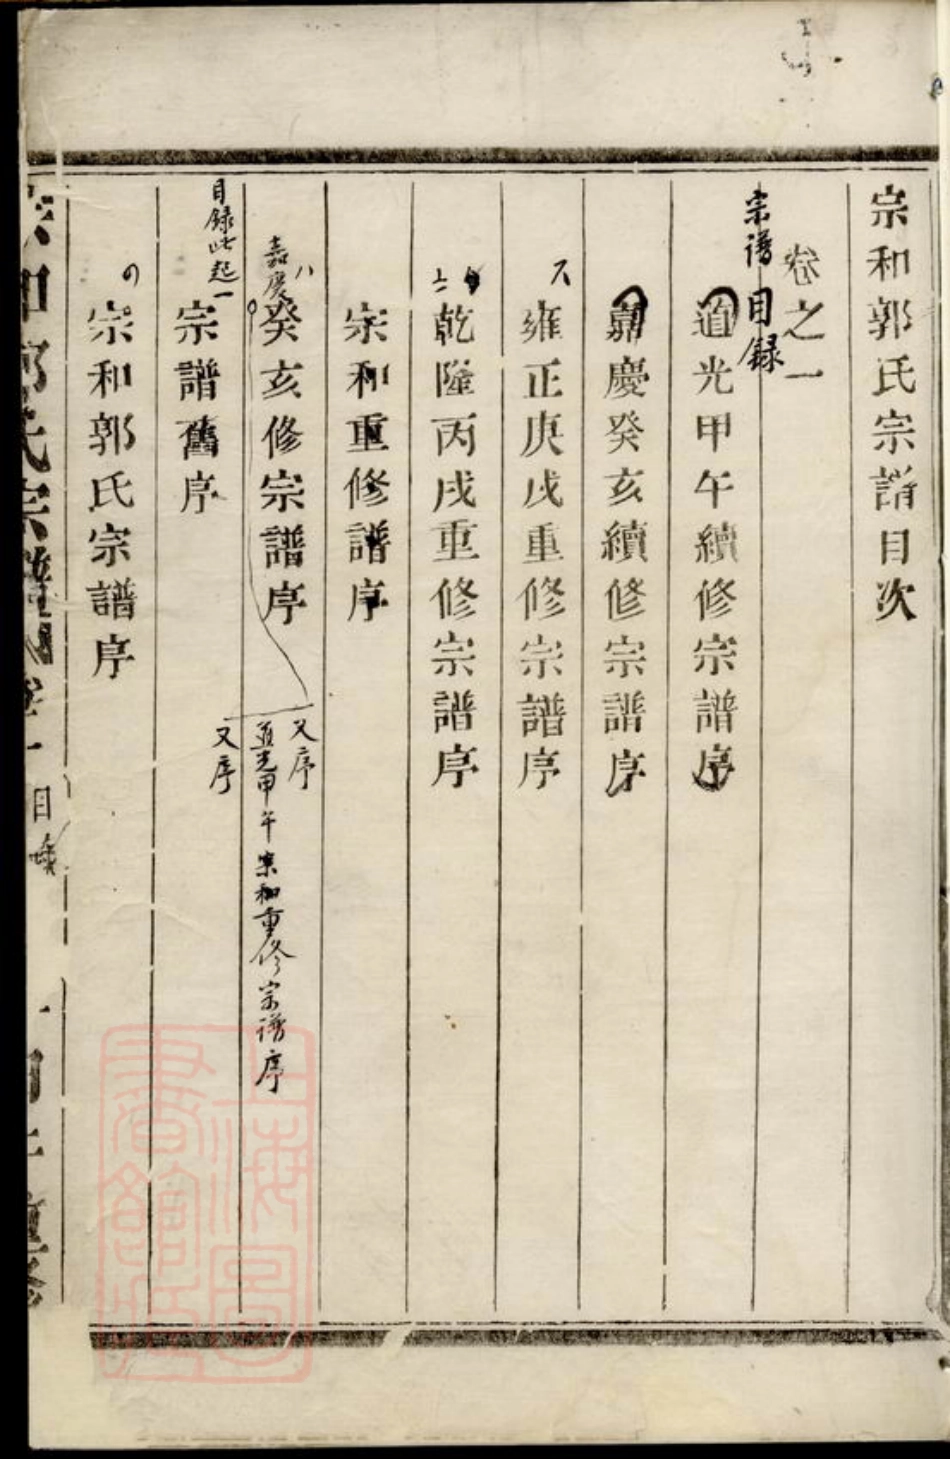 宗和郭氏宗譜目次
卷之一
宗谱目録
道光甲午續修宗譜序
嘉慶癸亥續修宗譜序
雍正庚戌重修宗譜序
乾隆丙戌重修宗譜序
宗和重修譜序
嘉慶
癸亥修宗譜序
又序
道光甲午宗和重修宗谱序
又序
目録此起
宗譜舊序
宗和郭氏宗譜序
宗和郭氏宗譜
卷一
目
上海圖書館藏